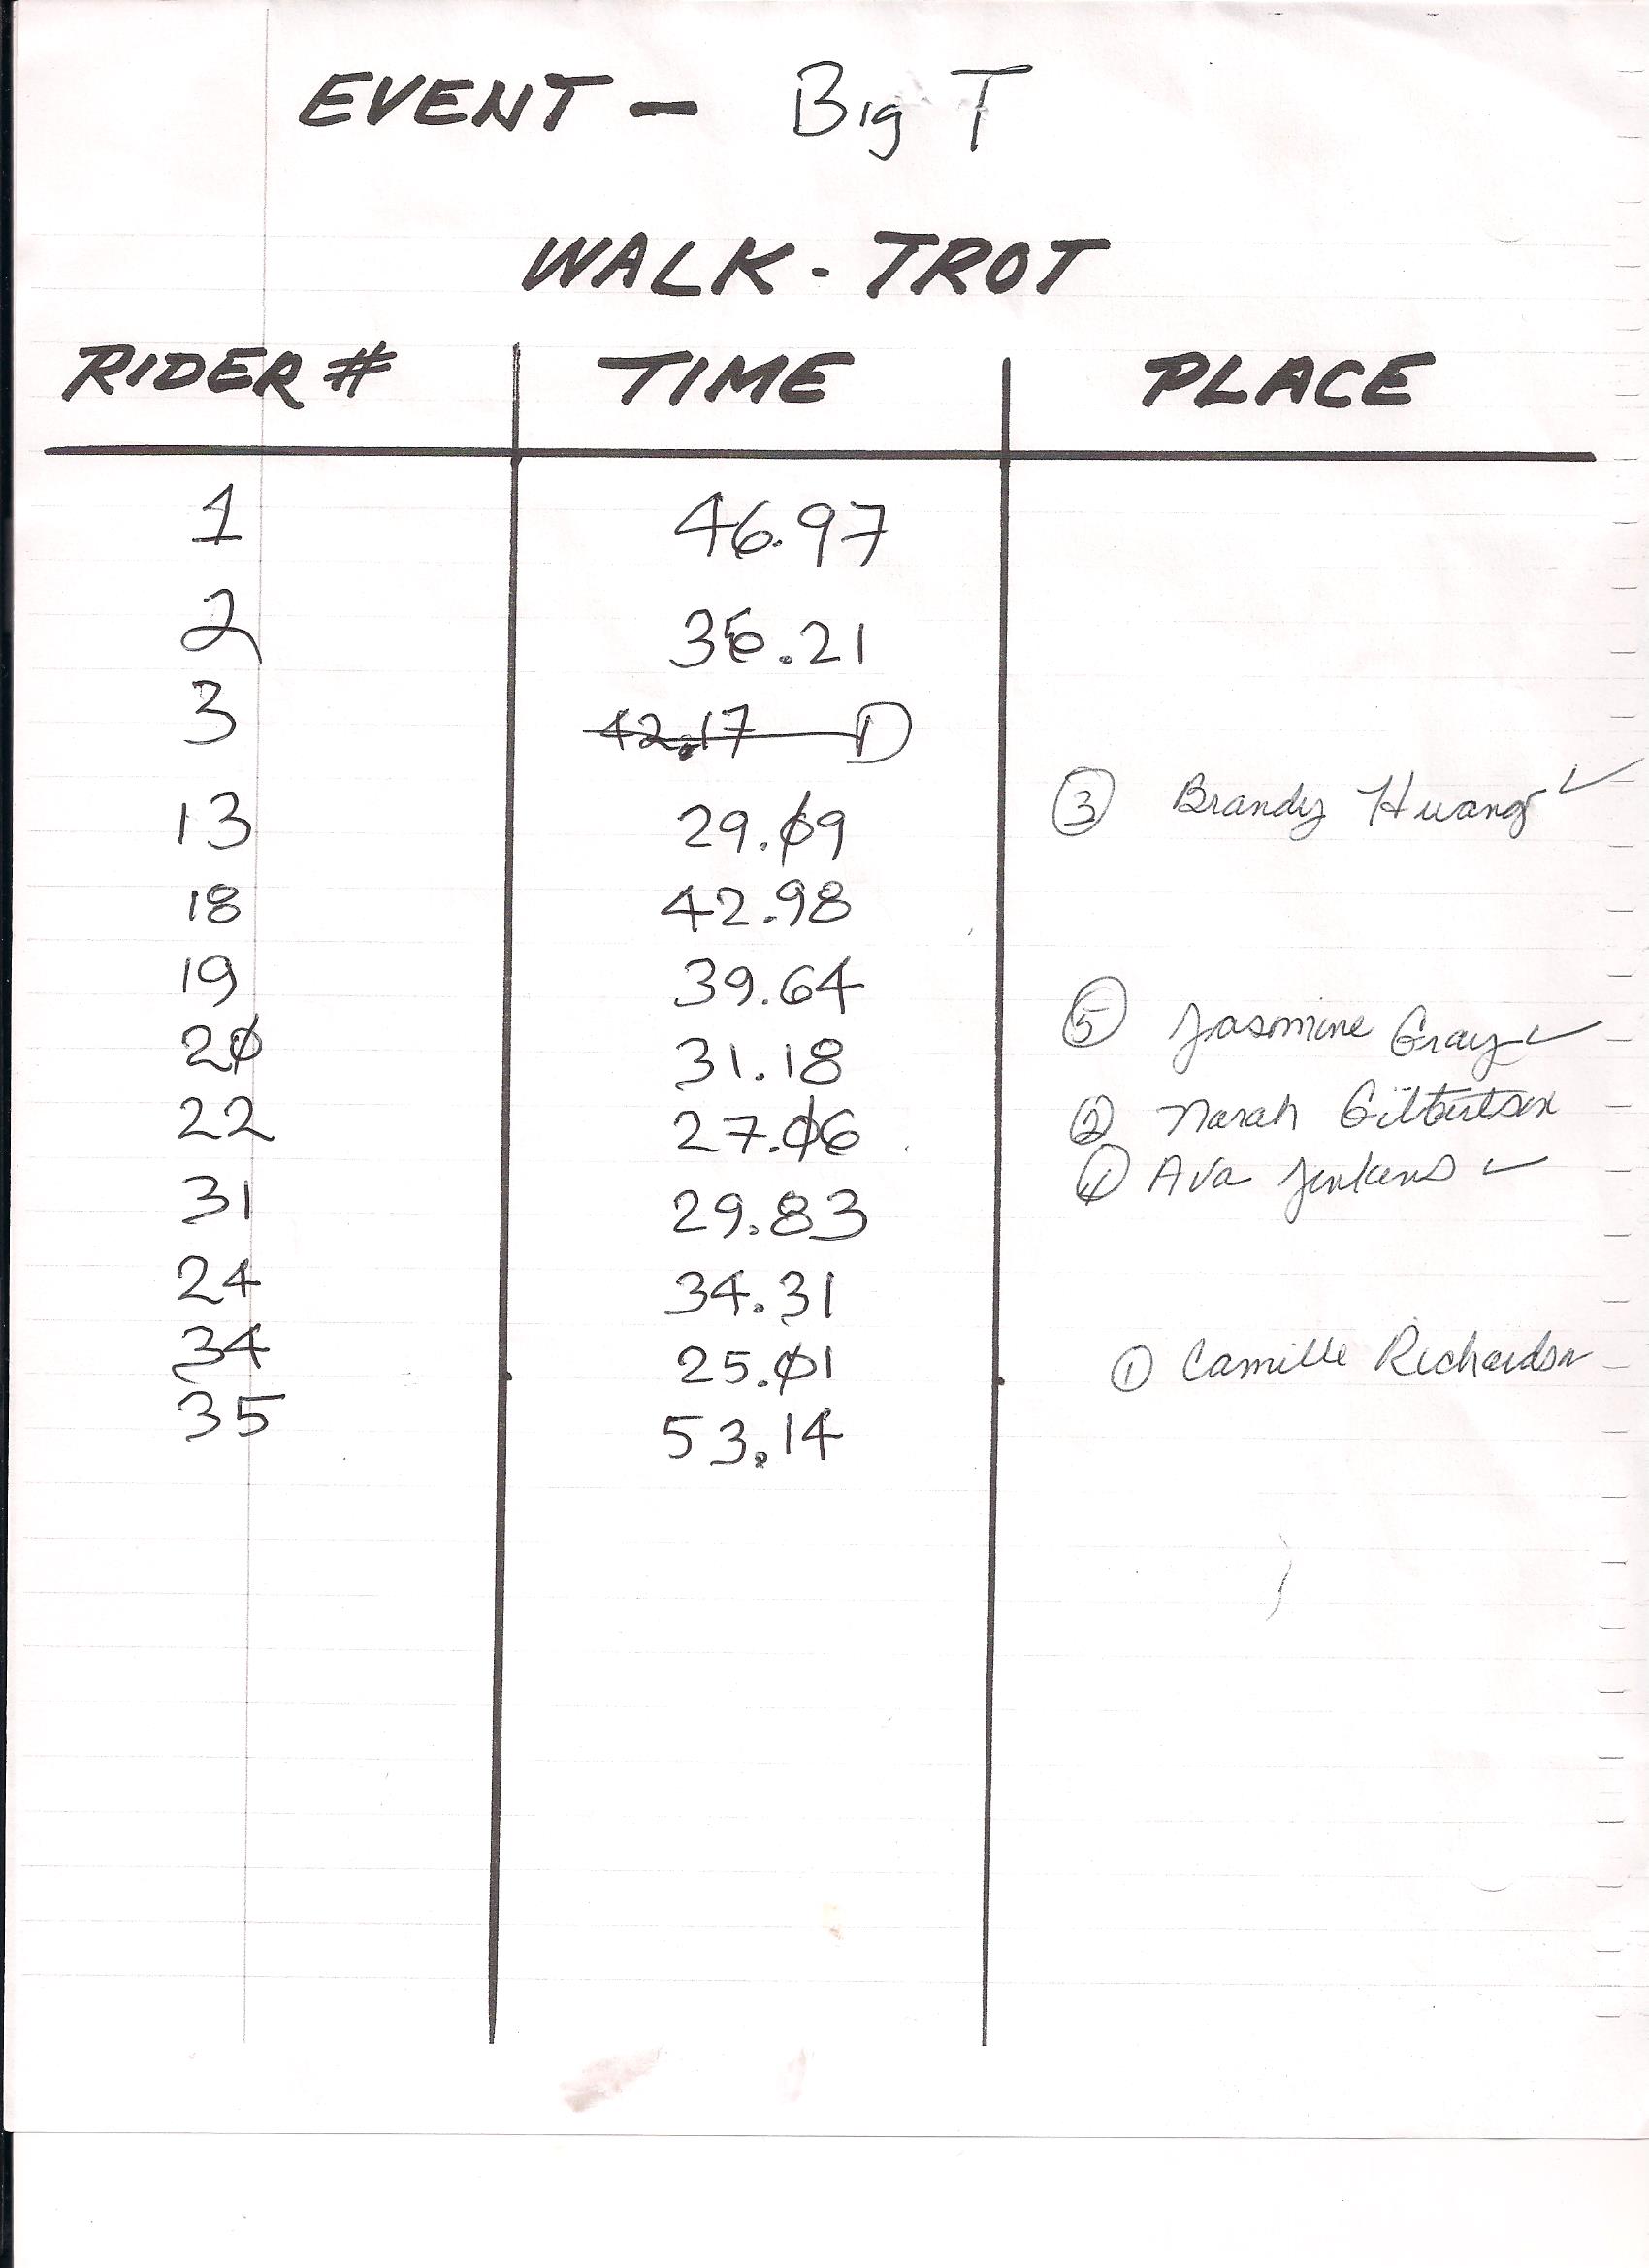 EVENT - Big T
WALK - TROT
RIDER # TIME PLACE
1 46.97
2 36.21
3 42.17 D
13 29.09 3 Brandy Huang ✓
18 42.98
19 39.64
20 31.18 5 Jasmine Gray ✓
22 27.06 2 Narah Gilbertson
31 29.83 4 Ava Jenkens ✓
24 34.31
34 25.01 1 Camille Richardson
35 53.14